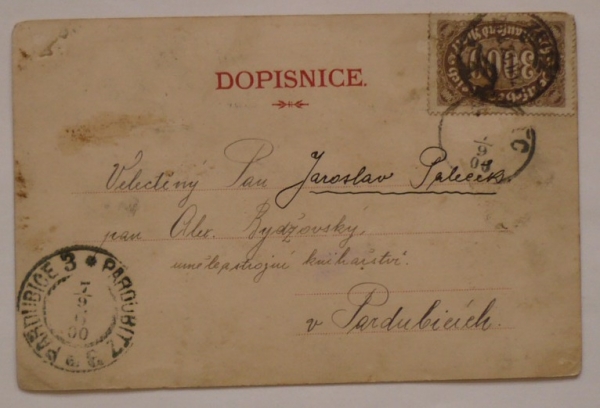 DOPISNICE.
3000
Velectěný Pan Jaroslav Paleček
pan Alex. Bydžovský,
umělecpstrojní knihařství.
v Pardubicích.
PARDUBICE 3 * PARDUBITZ 3 *